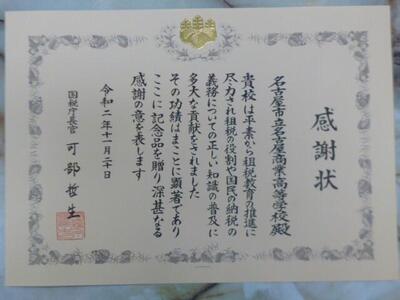 感謝状
名古屋市立名古屋商業高等学校殿
貴校は平素から租税教育の推進に
尽力され租税の役割や国民の納税の
義務についての正しい知識の普及に
多大な貢献をされました
その功績はまことに顕著であり
ここに記念品を贈り深甚なる
感謝の意を表します
令和二年十一月二十日
国税庁長官 可部哲生